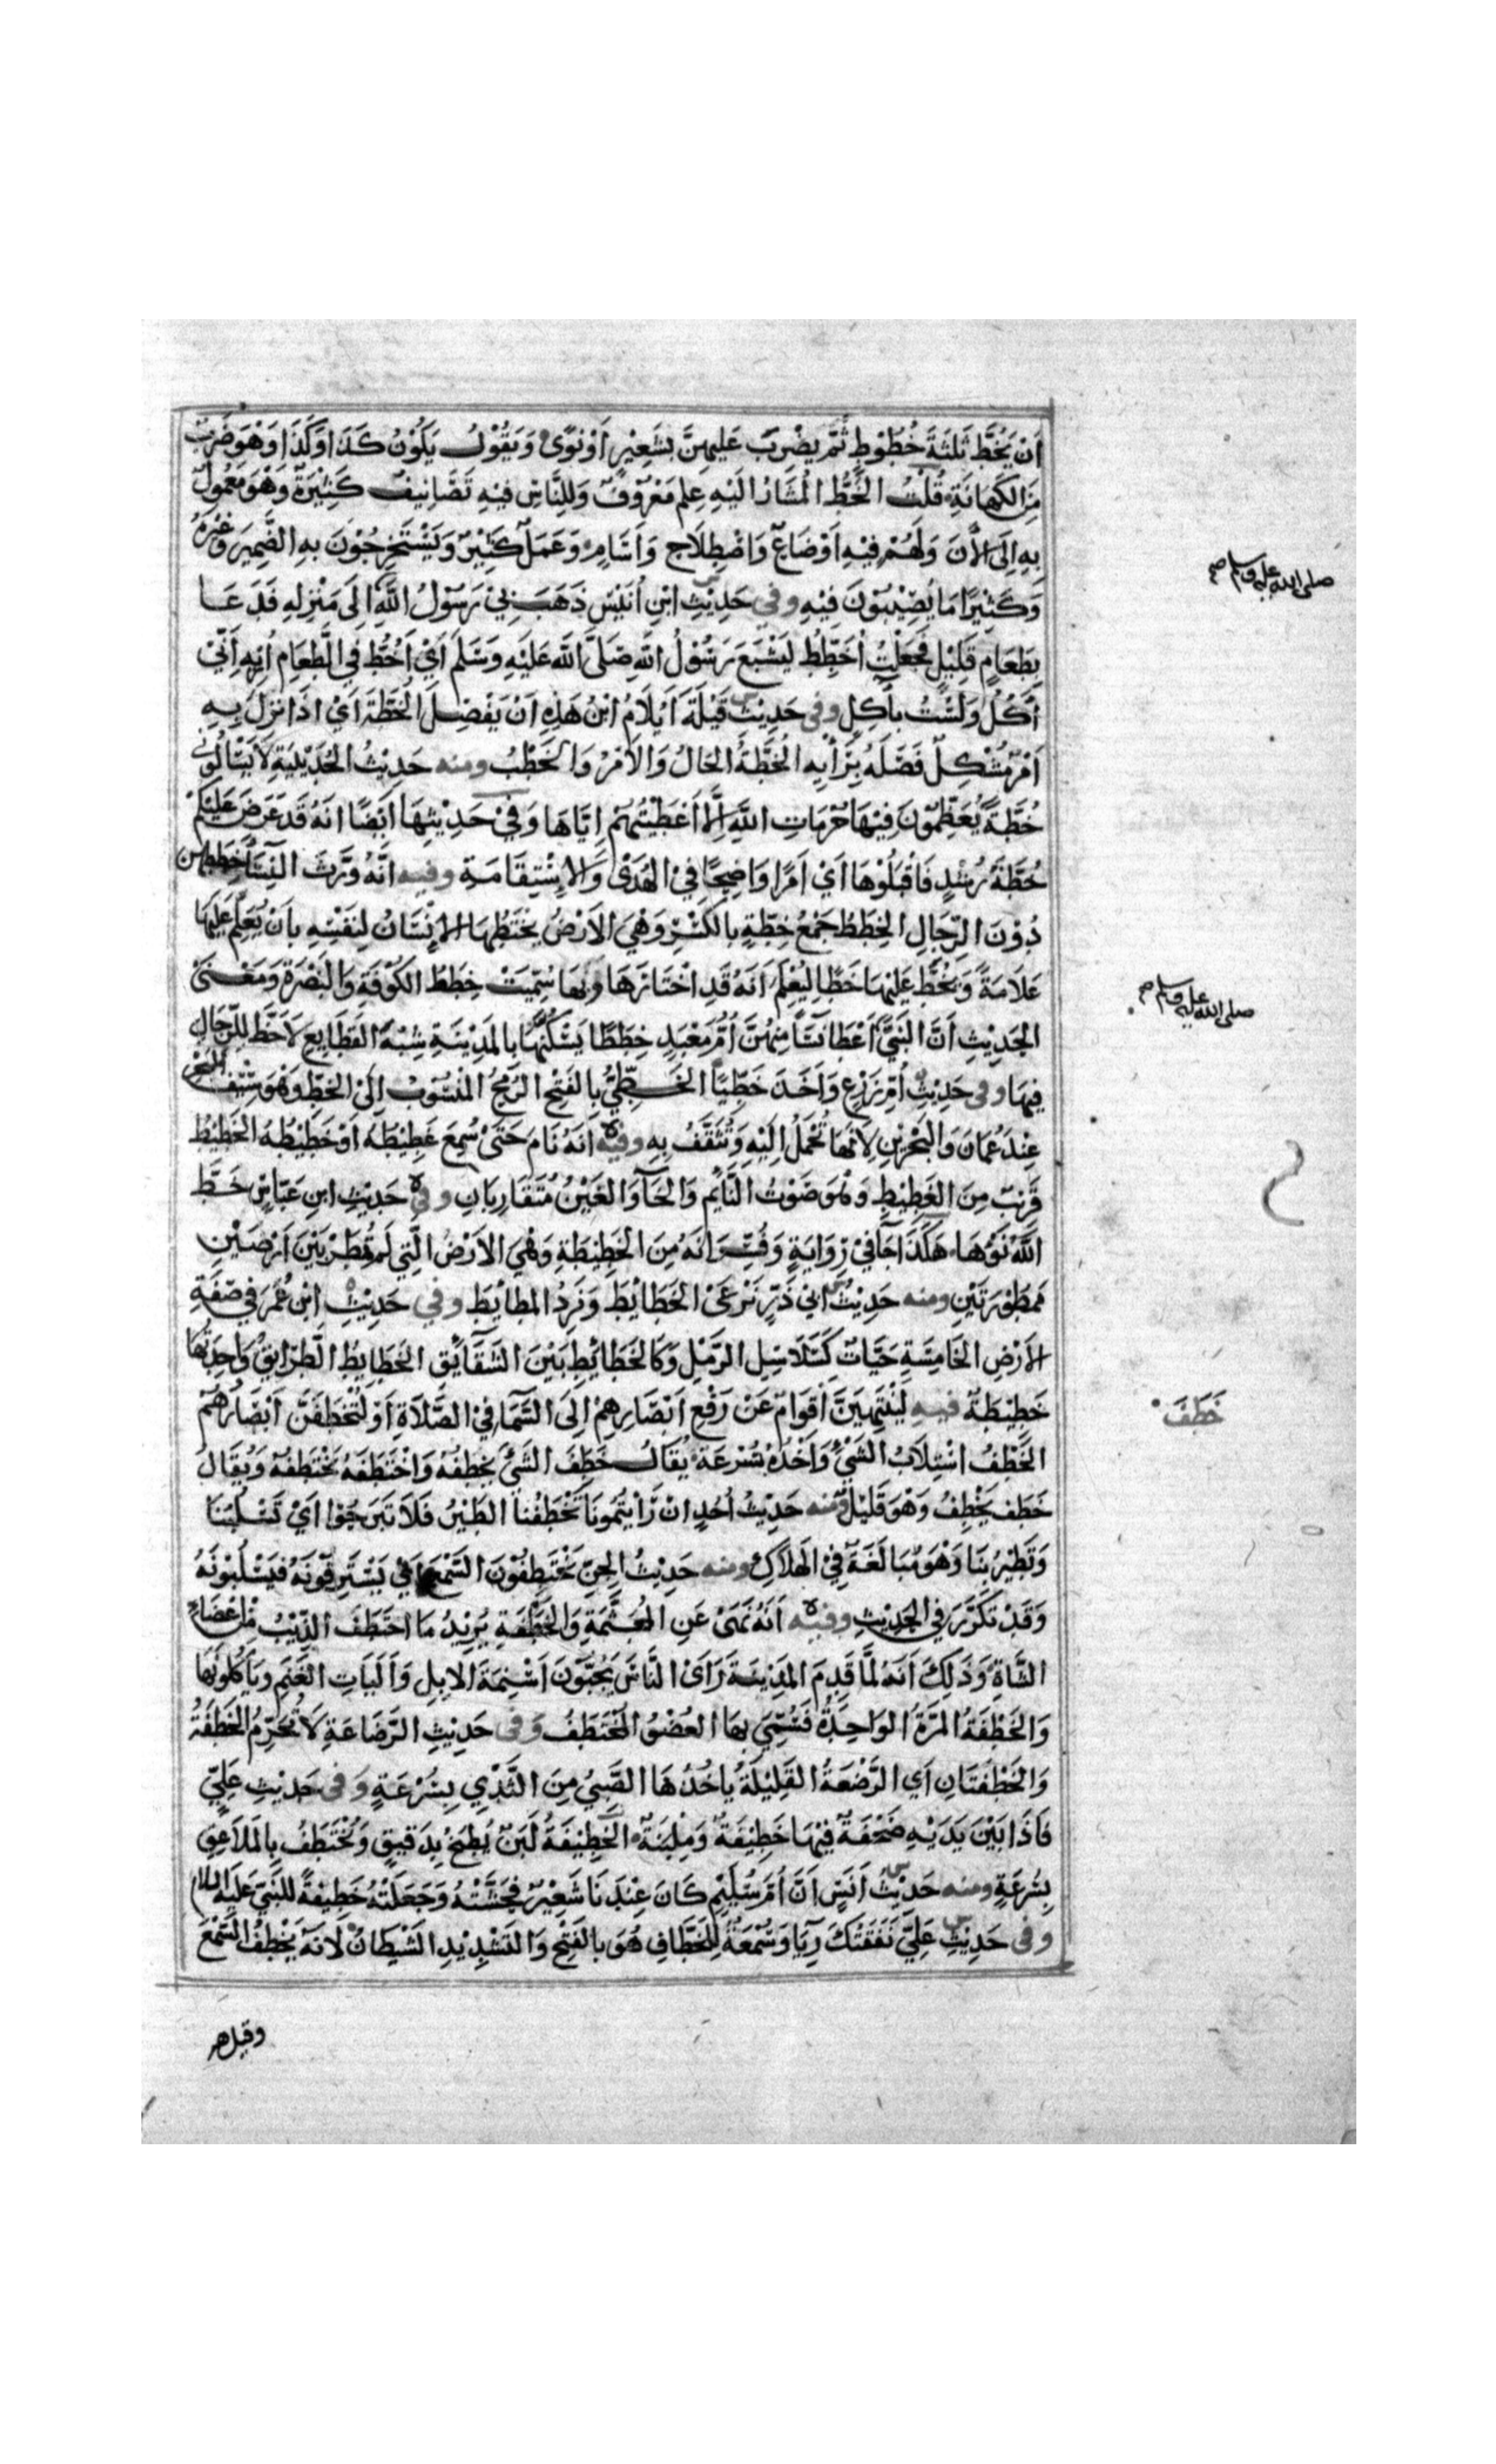 اَنْ يَخُطَّ ثَلٰثَةَ خُطُوْطٍ ثُمَّ يَضْرِبَ عَلَيهِنَّ بِشَعِيْرٍ اَوْ نَوًى وَيَقُوْلُ يَكُوْنُ كَذَا وَكَذَا وَهْوَ ضَرْبٌ
مِنَ الكَهَانَةِ قُلْتُ الخَطُّ المُشَارُ الَيْهِ عِلمٌ مَعْرُوْفٌ وَلِلنَّاسِ فِيْهِ تَصَانِيفُ كَثِيْرَةٌ وَهْوَ مَعْمُولٌ
بِهِ اِلَى الْاٰنَ وَلَهُمْ فِيْهِ اَوْضَاعٌ وَاصْطِلَاحٌ وَاَسَامٍ وَعَمَلٌ كَثِيْرٌ وَيَسْتَخْرِجُوْنَ بِهِ الضَّمِيرَ وَغَيْرَهُ
وَكَثِيْرًا مَا يُصِيْبُوْنَ فِيْهِ وفي حَدِيْثِ ابْنِ اُنَيْسٍ ذَهَبَ بِيْ رَسُوْلُ اللّٰهِ اِلَى مَنْزِلِهِ فَدَعَا
بِطَعَامٍ قَلِيْلٍ فَجَعَلْتُ اُخَطِّطُ لِيَشْبَعَ رَسُوْلُ اللّٰهِ صَلَّى اللّٰهُ عَلَيْهِ وَسَلَّمَ اَيْ اَخُطُّ فِي الطَّعَامِ اُرِيْهِ اَنِّيْ
اٰكُلُ وَلَسْتُ بِاٰكِلٍ وفى حَدِيْثِ قَيْلَةَ اَيُلَامُ ابْنُ هٰذِهِ اَنْ يَفْصِلَ الخُطَّةَ اَيْ اِذَا نَزَلَ بِهِ
اَمْرٌ مُشْكِلٌ فَصَلَهُ بِرَأْيِهِ الخُطَّةُ الحَالُ وَالاَمْرُ وَالخَطْبُ ومنه حَدِيْثُ الحُدَيْبِيَةِ لَا يَسْاَلُوْنِي
خُطَّةً يُعَظِّمُوْنَ فِيْهَا حُرُمَاتِ اللّٰهِ اِلَّا اَعْطَيْتُهُمْ اِيَّاهَا وَفِيْ حَدِيْثِهَا اَيْضًا انَّهُ قَدْ عَرَضَ عَلَيْكُمْ
خُطَّةَ رُشْدٍ فَاقْبَلُوْهَا اَيْ اَمْرًا وَاضِحًا فِيْ الهُدٰى وَالْاِسْتِقَامَةِ وفيه انَّهُ وَرَّثَ النِّسَآءَ خِطَطَهُنَّ
دُوْنَ الرِّجَالِ الخِطَطُ جَمْعُ خِطَّةٍ بِالكَسْرِ وَهْيَ الاَرْضُ يَخْتَطُّهَا الاِنْسَانُ لِنَفْسِهِ بِاَنْ يُعَلِّمَ عَلَيْهَا
عَلَامَةً وَيَخُطَّ عَلَيْهَا خَطًّا لِيُعْلَمَ اَنَّهُ قَدِ احْتَازَهَا وَبِهَا سُمِّيَتْ خِطَطُ الكُوْفَةِ وَالبَصْرَةِ وَمَعْنَى
الحَدِيْثِ اَنَّ النَّبِيَّ اَعْطٰى نِسَآءً مِنْهُنَّ اُمُّ مَعْبَدٍ خِطَطًا يَسْكُنَّهَا بِالمَدِيْنَةِ شِبْهَ القَطَايِعِ لَا حَظَّ لِلرِّجَالِ
فِيهَا وفى حَدِيْثِ اُمِّ زَرْعٍ وَاَخَذَ خَطِّيًّا الخَطِّيُّ بِالفَتْحِ الرُّمْحُ المَنْسُوْبُ اِلَى الخَطِّ وَهْوَ سِيْفُ البَحْرِ
عِنْدَ عُمَانَ وَالبَحْرَيْنِ لِاَنَّهَا تُحْمَلُ اِلَيْهِ وَتُثَقَّفُ بِهِ وفيه اَنَّهُ نَامَ حَتّٰى سُمِعَ غَطِيْطُهُ اَوْ خَطِيْطُهُ الخَطِيْطُ
قَرِيْبٌ مِنَ الغَطِيْطِ وَهُوَ صَوْتُ النَّايِمِ وَالخَآءُ وَالغَيْنُ مُتَقَارِبَانِ وفي حَدِيْثِ ابنِ عَبَّاسٍ خَطَّ
اللّٰهُ نَوْءَهَا هٰكَذَا جَآءَ فِيْ رِوَايَةٍ وَفُسِّرَ اَنَّهُ مِنَ الخَطِيْطَةِ وَهْيَ الاَرْضُ الَّتِي لَمْ تُمْطَرْ بَيْنَ اَرْضَيْنِ
مَمْطُوْرَتَيْنِ ومنه حَدِيْثُ ابي ذَرٍّ نَرْعَى الخَطَايِطَ وَنَرِدُ المَطَايِطَ وفي حَدِيْثِ ابْنِ عُمَرَ فِي صِفَةِ
الاَرْضِ الخَامِسَةِ حَيَّاتٌ كَسَلَاسِلِ الرَّمْلِ وَكَالخَطَائِطِ بَيْنَ الشَّقَآئِقِ الخَطَايِطُ الطَّرَايِقُ وَاحِدَتُهَا
خَطِيطَةٌ فيه لَيَنْتَهِيَنَّ اَقْوَامٌ عَنْ رَفْعِ اَبْصَارِهِمْ اِلَى السَّمَآءِ فِيْ الصَّلَاةِ اَوْ لَتُخْطَفَنَّ اَبْصَارُهُمْ
الخَطْفُ اسْتِلَابُ الشَّيْءِ وَاَخْذُهُ بِسُرْعَةٍ يُقَالُ خَطِفَ الشَّيْءَ يَخْطَفُهُ وَاخْتَطَفَهُ يَخْتَطِفُهُ وَيُقَالُ
خَطَفَ يَخْطِفُ وَهْوَ قَلِيْلٌ ومنه حَدِيْثُ اُحُدٍ اِنْ رَاَيْتُمُونَا تَخْطَفُنَا الطَّيْرُ فَلَا تَبْرَحُوْا اَيْ تَسْتَلِبُنَا
وَتَطِيْرُ بِنَا وَهْوَ مُبَالَغَةٌ فِي الهَلَاكِ ومنه حَدِيْثُ الجِنِّ يَخْتَطِفُوْنَ السَّمْعَ اَيْ يَسْتَرِقُوْنَهُ فَيَسْلُبُوْنَهُ
وَقَدْ تَكَرَّرَ فِي الحَدِيْثِ وفيه اَنَّهُ نَهٰى عَنِ المُجَثَّمَةِ وَالخَطْفَةِ يُرِيْدُ مَا اخْتَطَفَ الذِّيْبُ مِنْ اَعْضَآءِ
الشَّاةِ وَذٰلِكَ اَنَّهُ لَمَّا قَدِمَ المَدِيْنَةَ رَاٰى النَّاسَ يَجُبُّوْنَ اَسْنِمَةَ الابِلِ وَاَلَيَاتِ الغَنَمِ وَيَاْكُلُونَهَا
وَالخَطْفَةُ المَرَّةُ الوَاحِدَةُ فَسُمِّيَ بِهَا العُضْوُ المُخْتَطَفُ وَفى حَدِيْثِ الرَّضَاعَةِ لَا تُحَرِّمُ الخَطْفَةُ
وَالخَطْفَتَانِ اَيِ الرَّضْعَةُ القَلِيْلَةُ يَاخُذُهَا الصَّبِيُّ مِنَ الثَّدْيِ بِسُرْعَةٍ وَفى حَدِيْثِ عَلِيٍّ
فَاِذَا بَيْنَ يَدَيْهِ صَحْفَةٌ فِيْهَا خَطِيْفَةٌ وَمِلْبَنَةٌ الخَطِيْفَةُ لَبَنٌ يُطْبَخُ بِدَقِيْقٍ وَيُخْتَطَفُ بِالمَلَاعِقِ
بِسُرْعَةٍ ومنه حَدِيْثُ اَنَسٍ اَنَّ اُمَّ سُلَيْمٍ كَانَ عِنْدَنَا شَعِيْرٌ فَجَشَّتْهُ وَجَعَلَتْهُ خَطِيْفَةً لِلنَّبِيِّ عَلَيْهِ السلام
وفى حَدِيْثِ عَلِيٍّ نَفَقَتُكَ رِيَآءً وَسُمْعَةً لِلْخَطَّافِ هُوَ بِالفَتْحِ وَالتَّشْدِيْدِ الشَّيْطَانُ لِاَنَّهُ يَخْطِفُ السَّمْعَ
وقيل هو
صلى الله عليه وسلم صح
صلى الله عليه وسلم صح
خَطَفَ